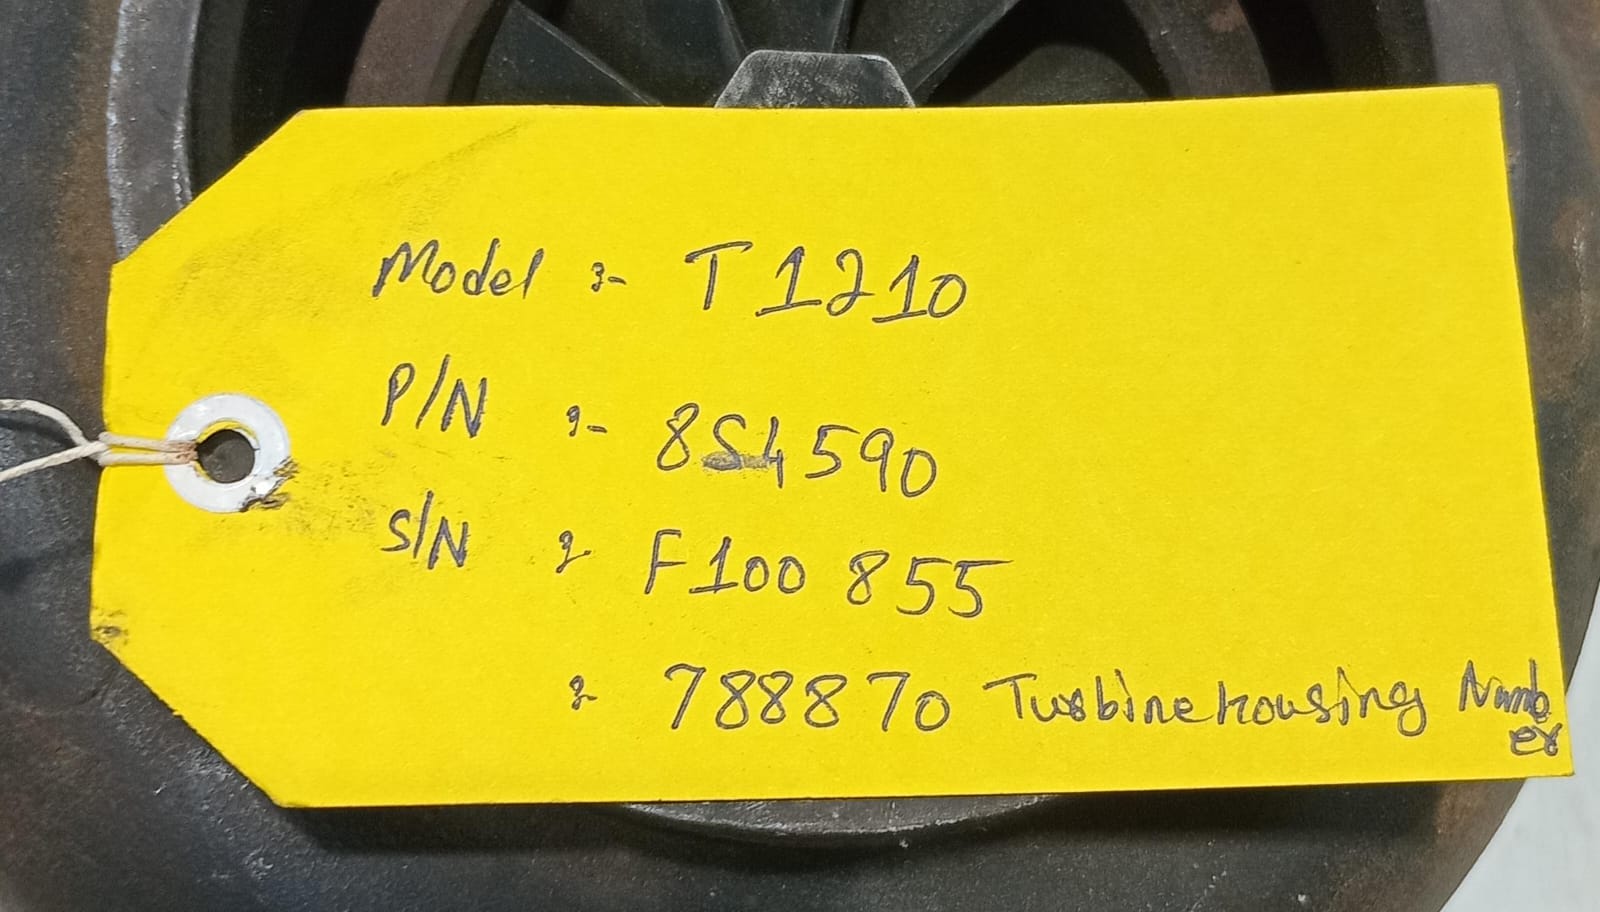 Model :- T1210
P/N :- 8S4590
S/N :- F100 855
:- 788870 Turbine housing Number